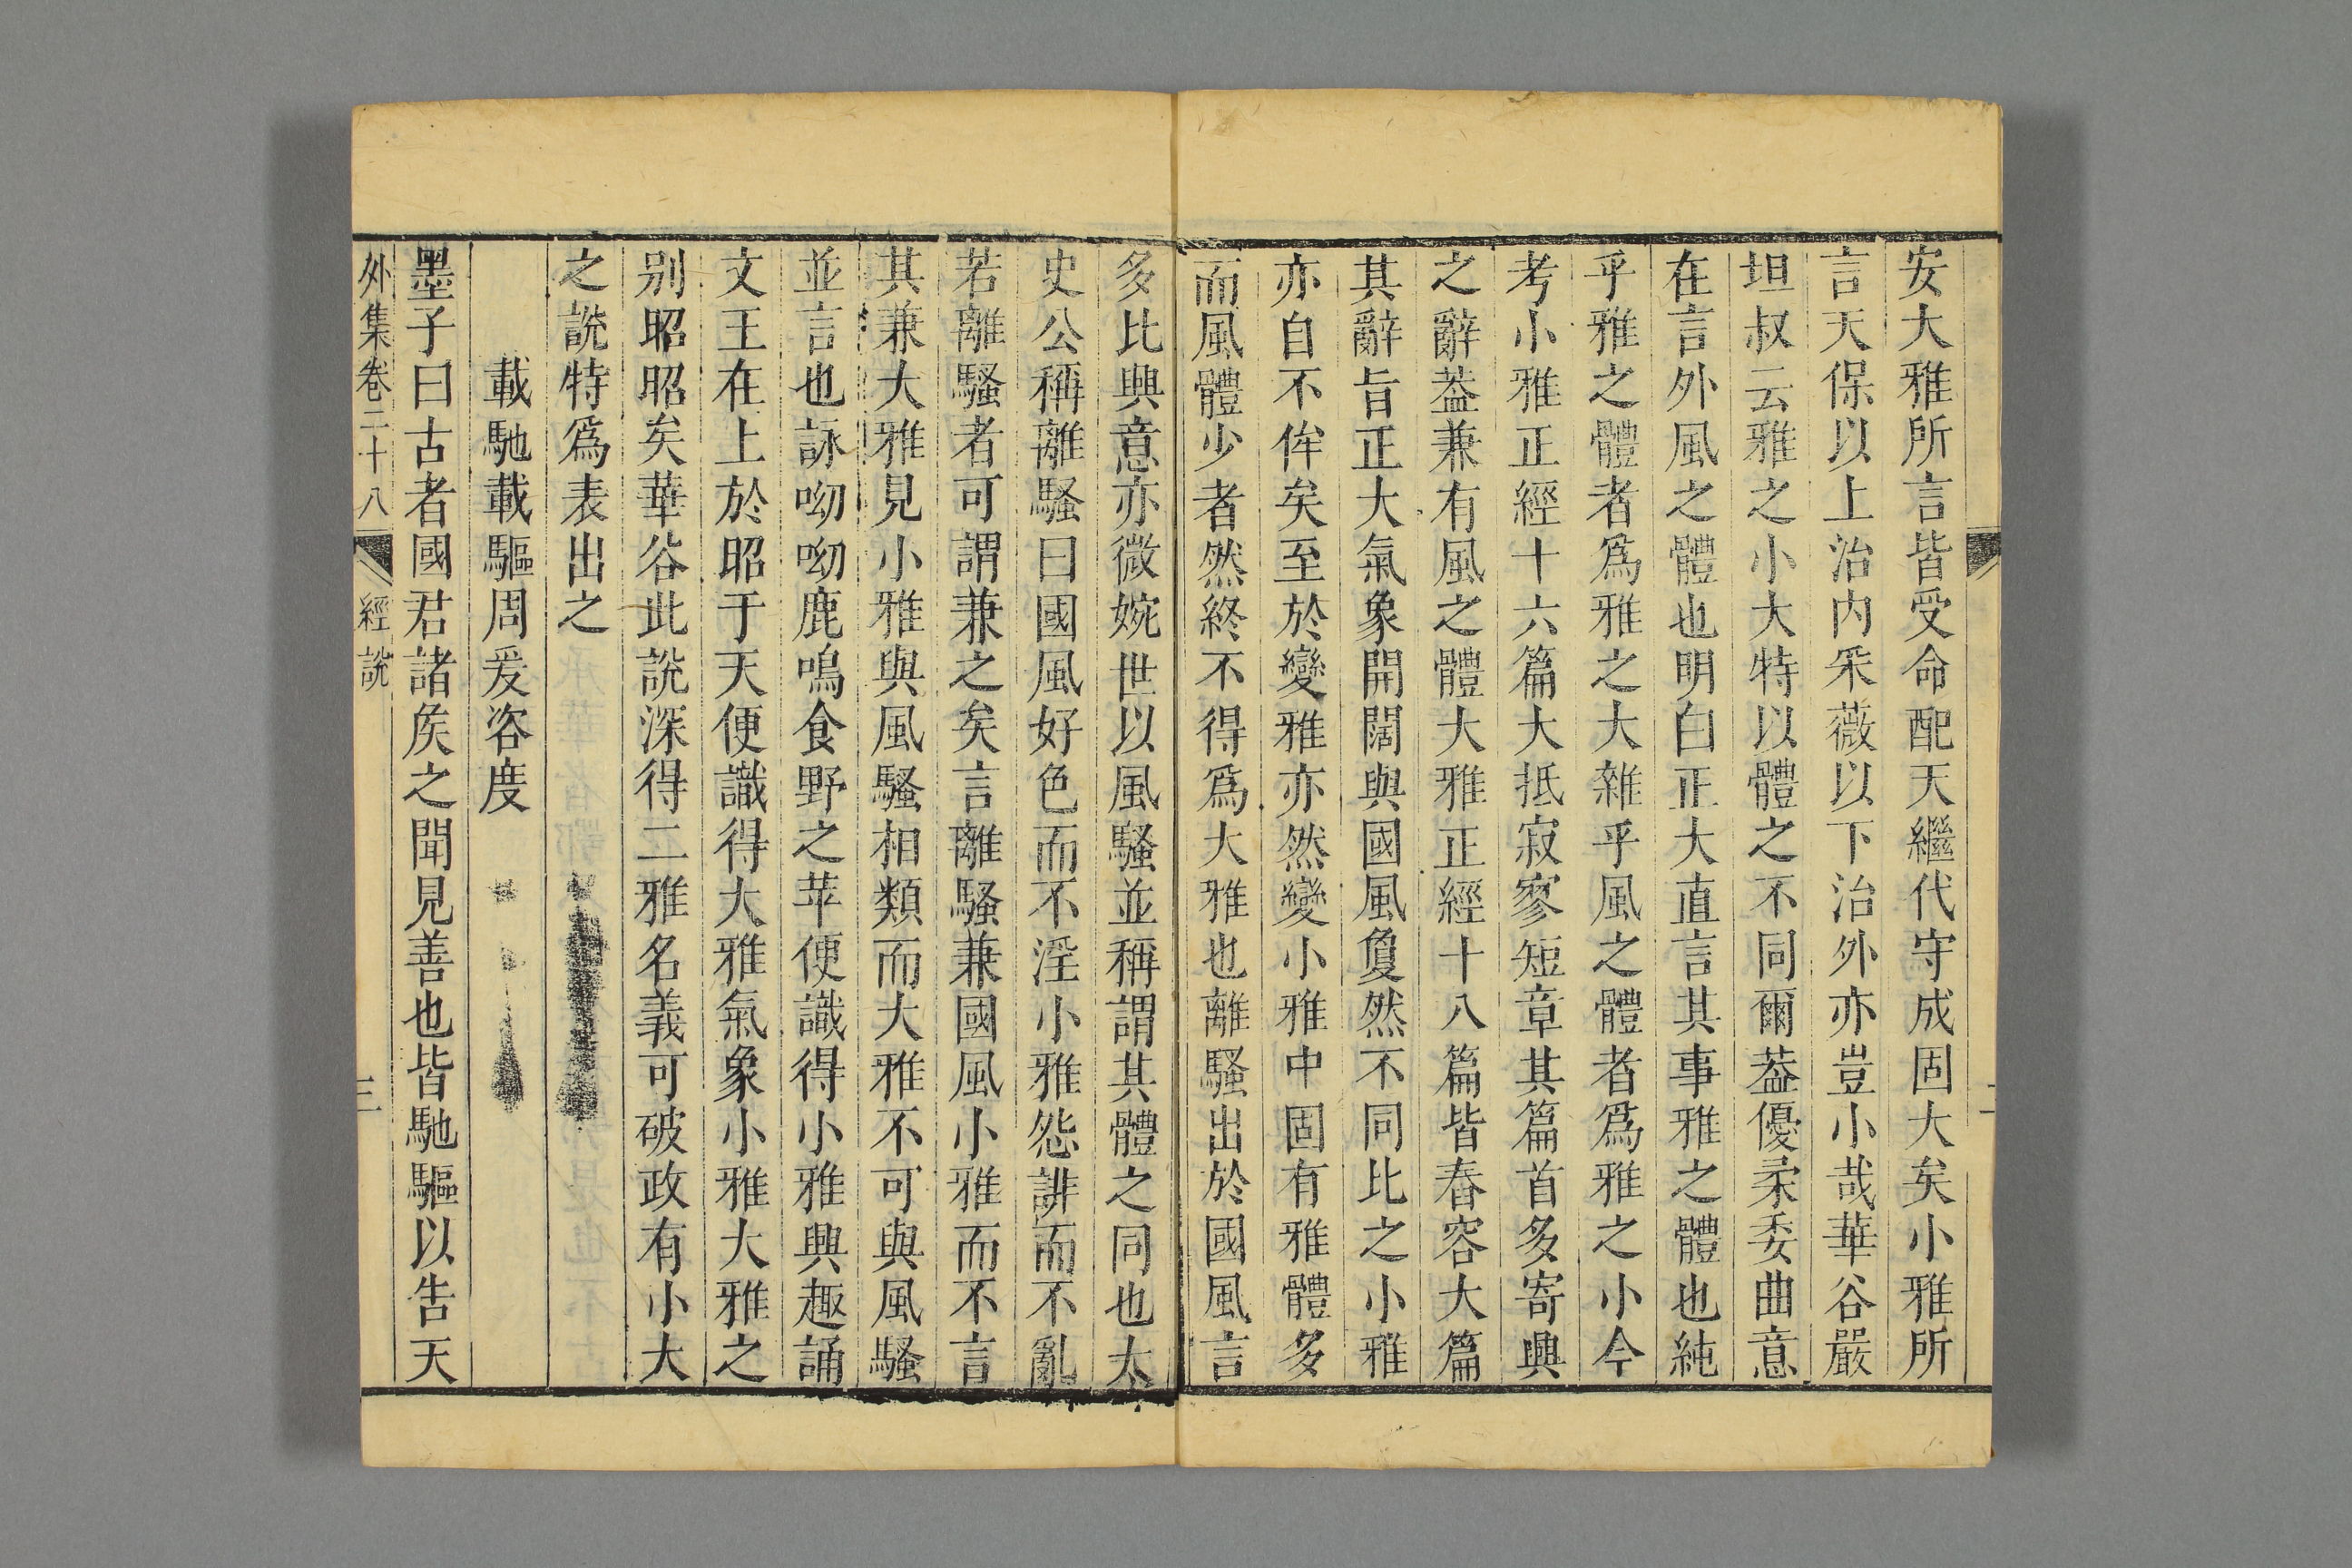 安大雅所言皆受命配天繼代守成固大矣小雅所
言天保以上治内采薇以下治外亦豈小哉華谷嚴
坦叔云雅之小大特以體之不同爾葢優柔委曲意
在言外風之體也明白正大直言其事雅之體也純
乎雅之體者爲雅之大雜乎風之體者爲雅之小今
考小雅正經十六篇大抵寂寥短章其篇首多寄興
之辭葢兼有風之體大雅正經十八篇皆舂容大篇
其辭旨正大氣象開闊與國風敻然不同比之小雅
亦自不侔矣至於變雅亦然變小雅中固有雅體多
而風體少者然終不得爲大雅也離騷出於國風言
多比興意亦微婉世以風騷並稱謂其體之同也太
史公稱離騷曰國風好色而不淫小雅怨誹而不亂
若離騷者可謂兼之矣言離騷兼國風小雅而不言
其兼大雅見小雅與風騷相類而大雅不可與風騷
並言也詠呦呦鹿鳴食野之苹便識得小雅興趣誦
文王在上於昭于天便識得大雅氣象小雅大雅之
别昭昭矣華谷此説深得二雅名義可破政有小大
之説特爲表出之
載馳載驅周爰咨度
墨子曰古者國君諸矦之聞見善也皆馳驅以告天
外集卷二十八 經説 三